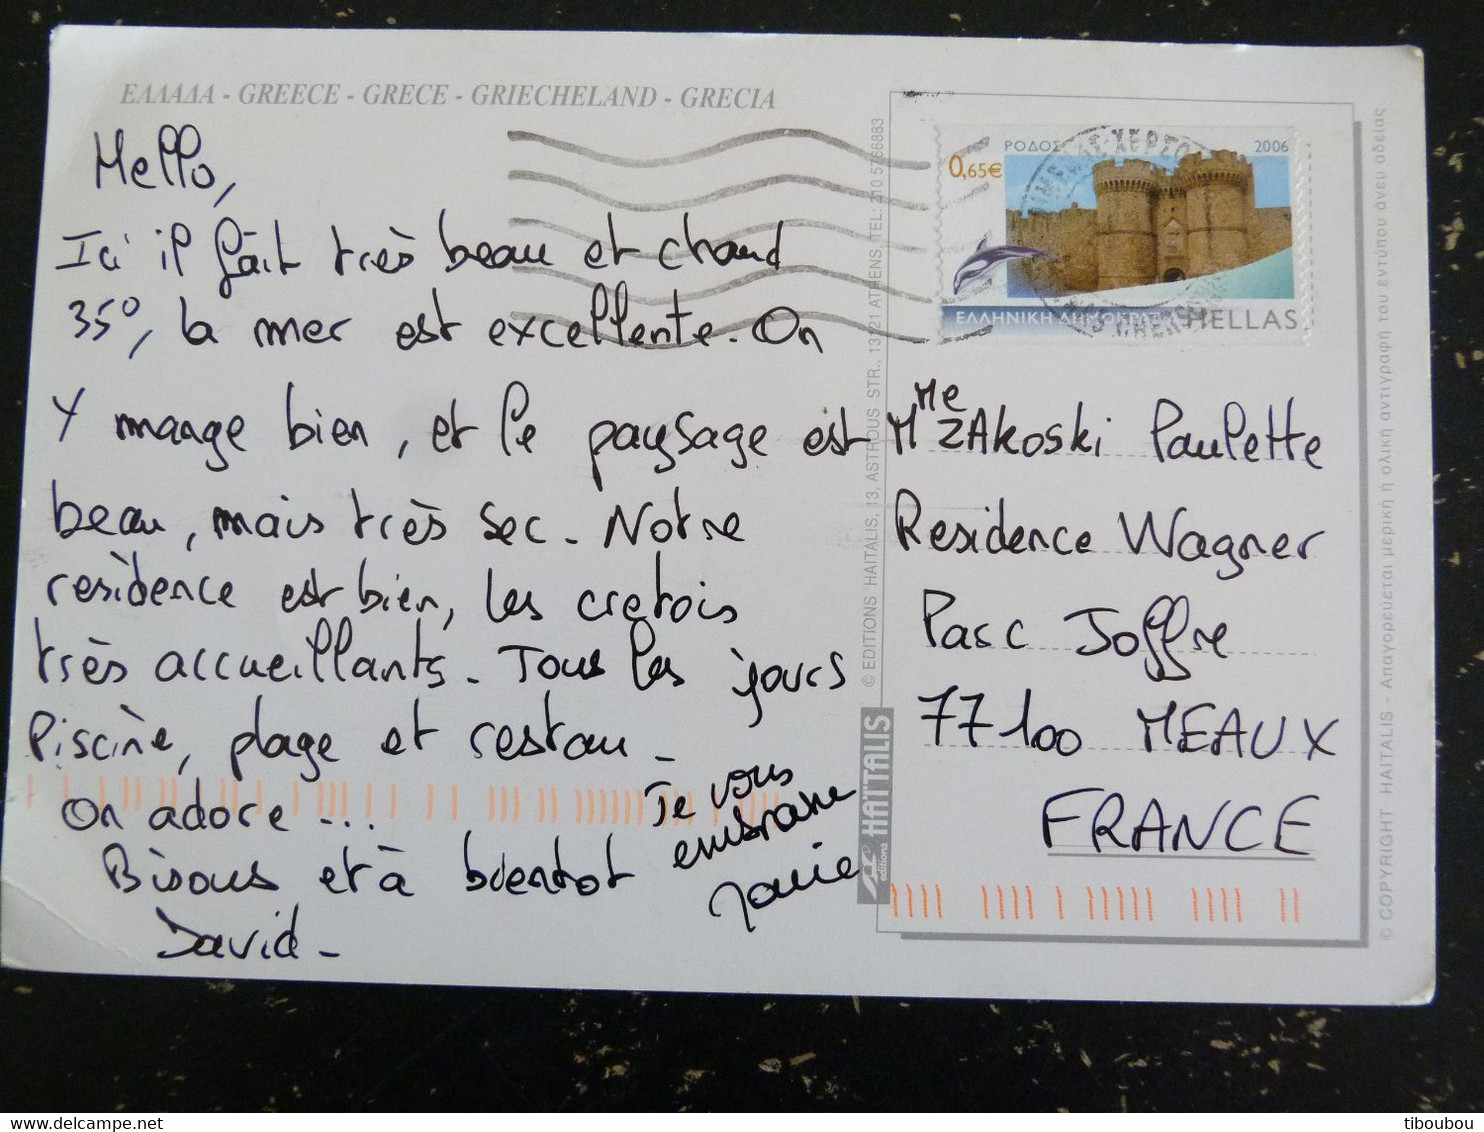 ΕΛΛΑΔΑ - GREECE - GRECE - GRIECHELAND - GRECIA
Hello,
Ici il fait très beau et chaud
35°, la mer est excellente. On
Y mange bien, et le paysage est
beau, mais très sec. Notre
residence est bien, les cretois
très accueillants. Tous les jours
Piscine, plage et restau -
On adore ...
Bisous et à bientot
David -
Je vous
embrasse
© EDITIONS HAITALIS, 13, ASTROUS STR., 13121 ATHENS, TEL: 210 5766883
editions HAITALIS
ΡΟΔΟΣ 2006
0,65€
ΕΛΛΗΝΙΚΗ ΔΗΜΟΚΡΑΤΙΑ HELLAS
MMe ZAkoski Paulette
Residence Wagner
Parc Joffre
77100 MEAUX
FRANCE
© COPYRIGHT HAITALIS - Απαγορεύεται μερική ή ολική αντιγραφή του εντύπου άνευ αδείας
tiboubou